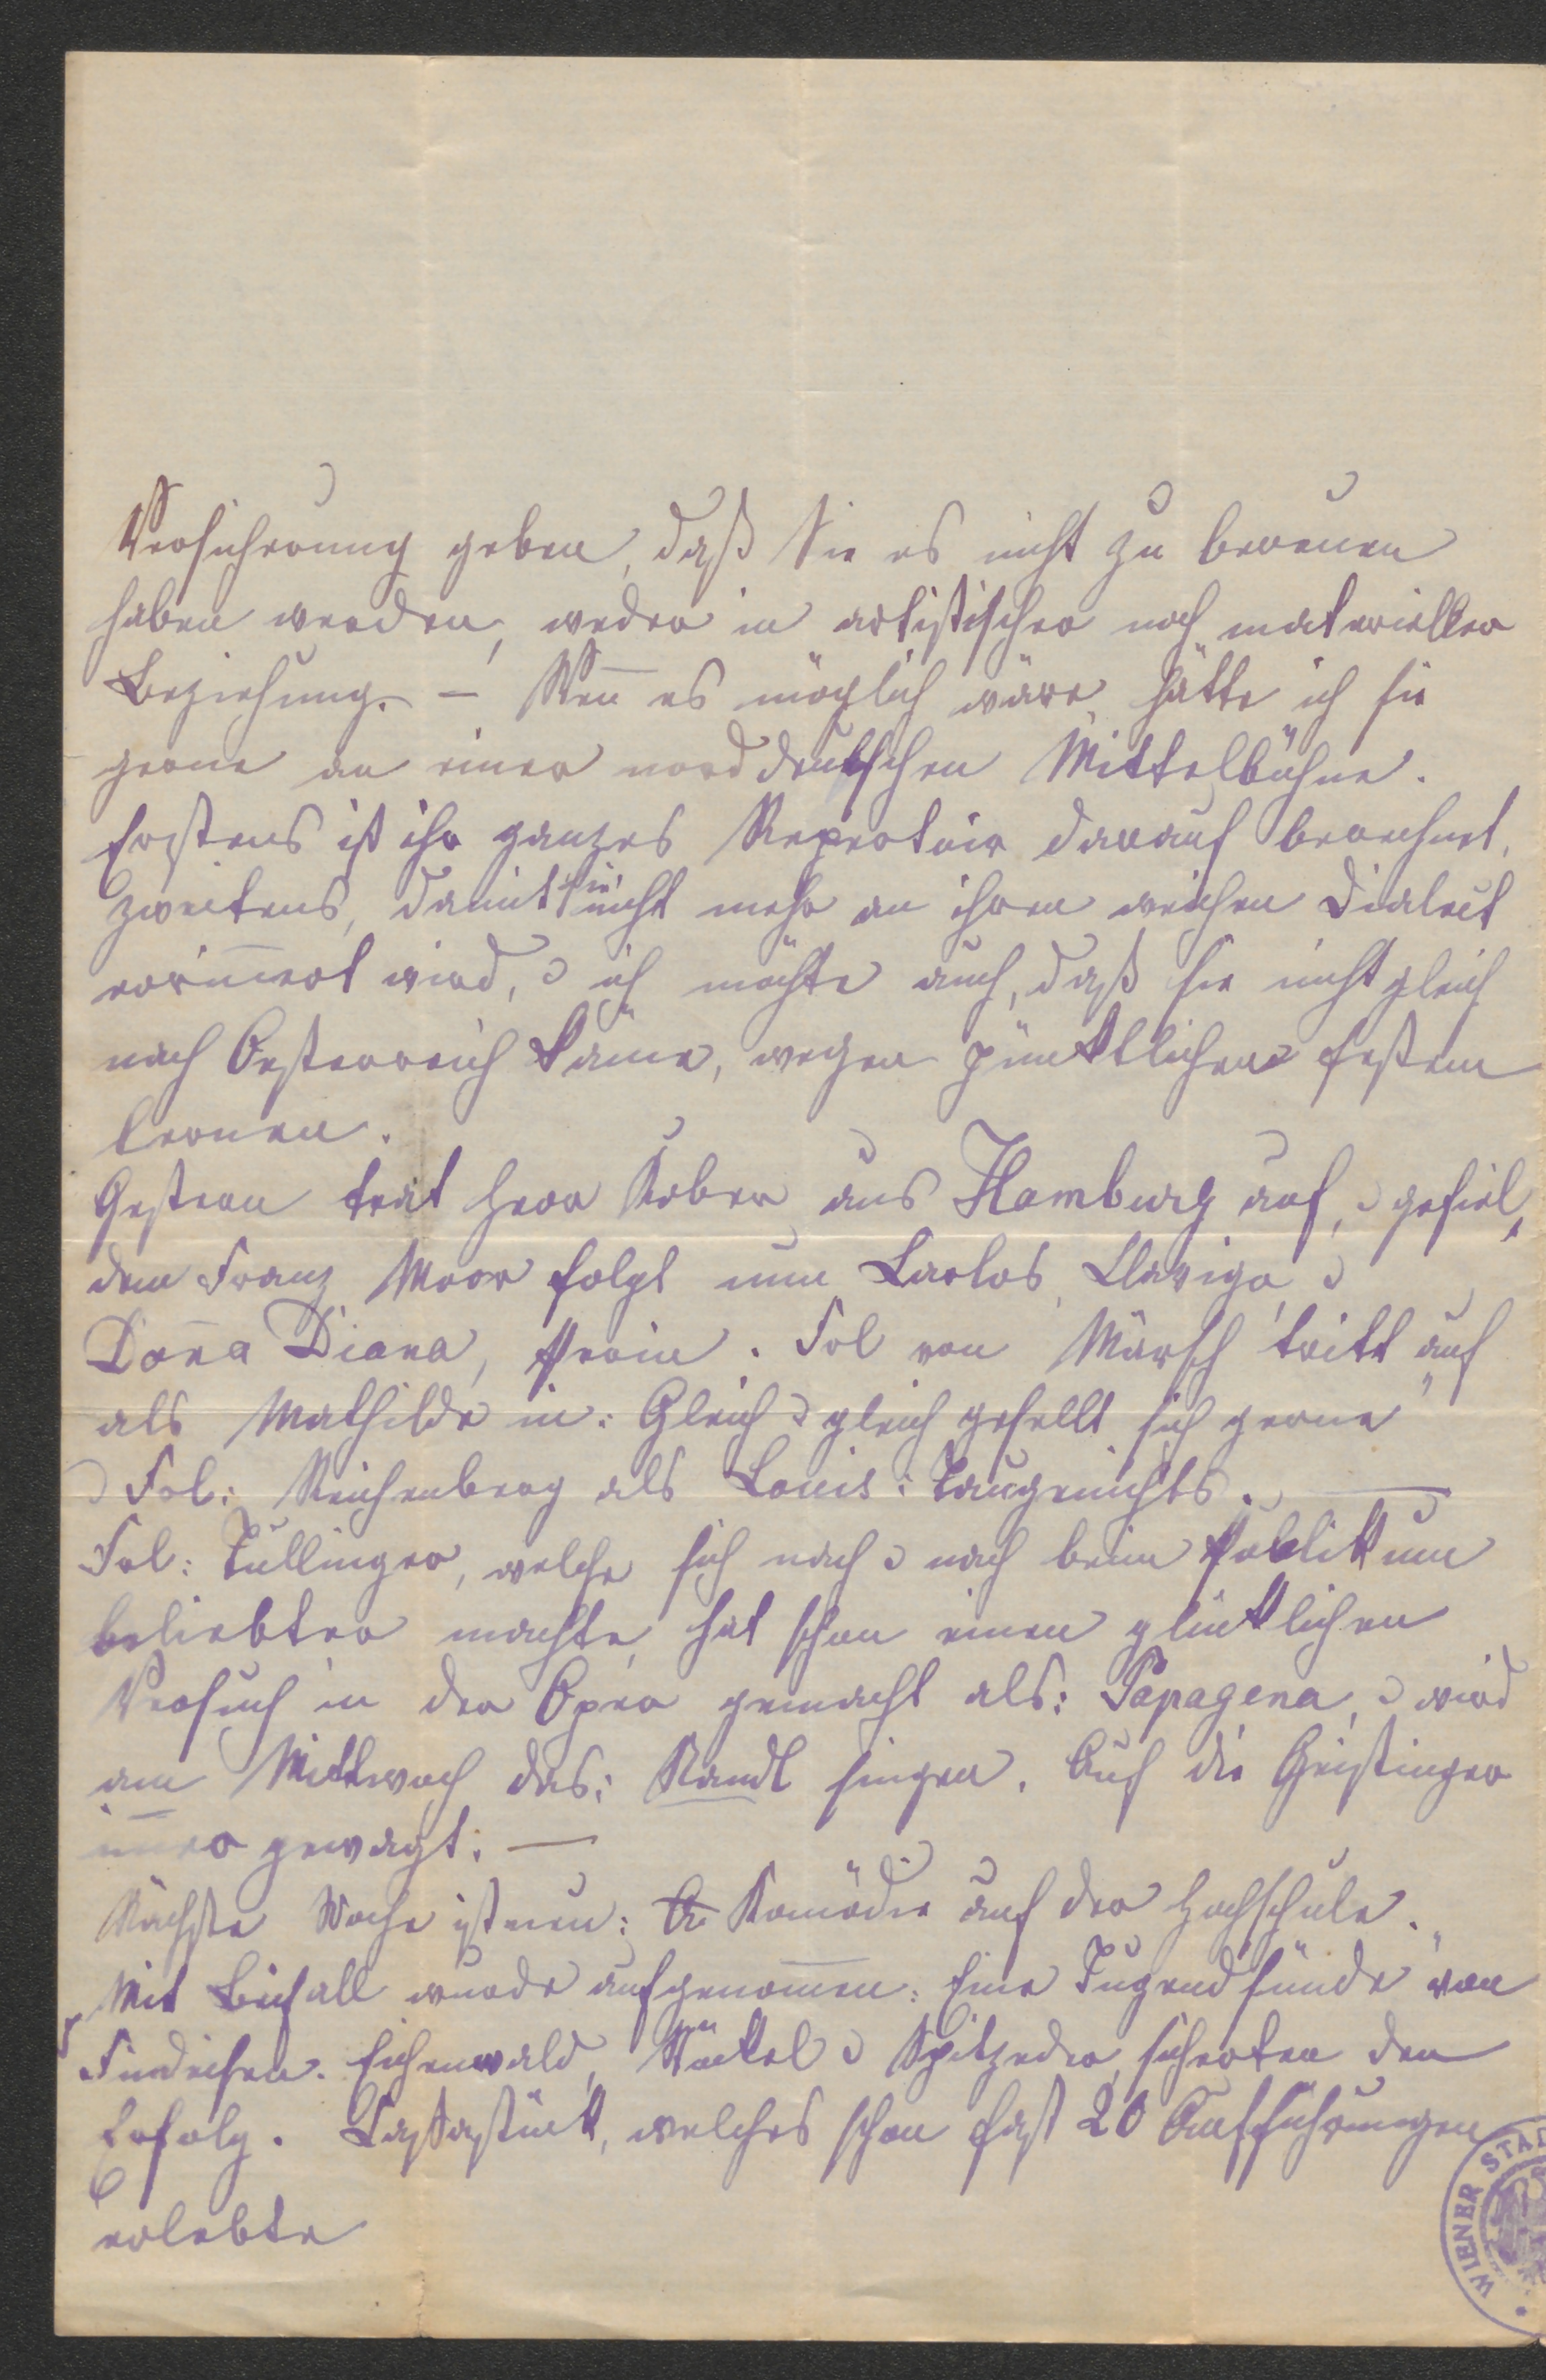 Versicherung geben, daß Sie es nicht zu bereuen
haben werden, weder in artistischer noch materieller
Beziehung. – Wen̄ es möglich wäre, hätte ich sie
gerne an einer norddeutschen Mittelbühne.
Erstens ist ihr ganzes Repertoir darauf berechnet,
zweitens, damit sie nicht mehr an ihren weichen Dialect
erin̄ert wird, u ich möchte auch, daß sie nicht gleich
nach Oesterreich käme, wegen pünktlichen festem
lernen.
Gestern trat Herr Kober aus Hamburg auf, u gefiel,
dem Franz Moor folgt nun Carlos, Clavigo, u
Don̄a Diana, Perin. Frl von Märsch tritt auf
als Mathilde in: Gleich u gleich gesellt sich gerne"
u Frl: Reichenberg als Louis: Taugenichts. —
Frl: Tullinger, welche sich nach u nach beim Publikum
beliebter machte, hat schon einen glücklichen
Versuch in der Oper gemacht als: Papagena, u wird
am Mittwoch das: Nandl singen. Auf die Geistinger
im̄er gewagt: —
Nächste Woche ist neu: Komödie auf der Hochschule.
Mit Beifall wurde aufgenom̄en: Eine Jugendsünde" von
Findeisen. Eichenwald, Stöckel u Spitzeder sicherten den
Erfolg. Cassastück, welches schon fast 20 Aufführungen
erlebte
WIENER STA